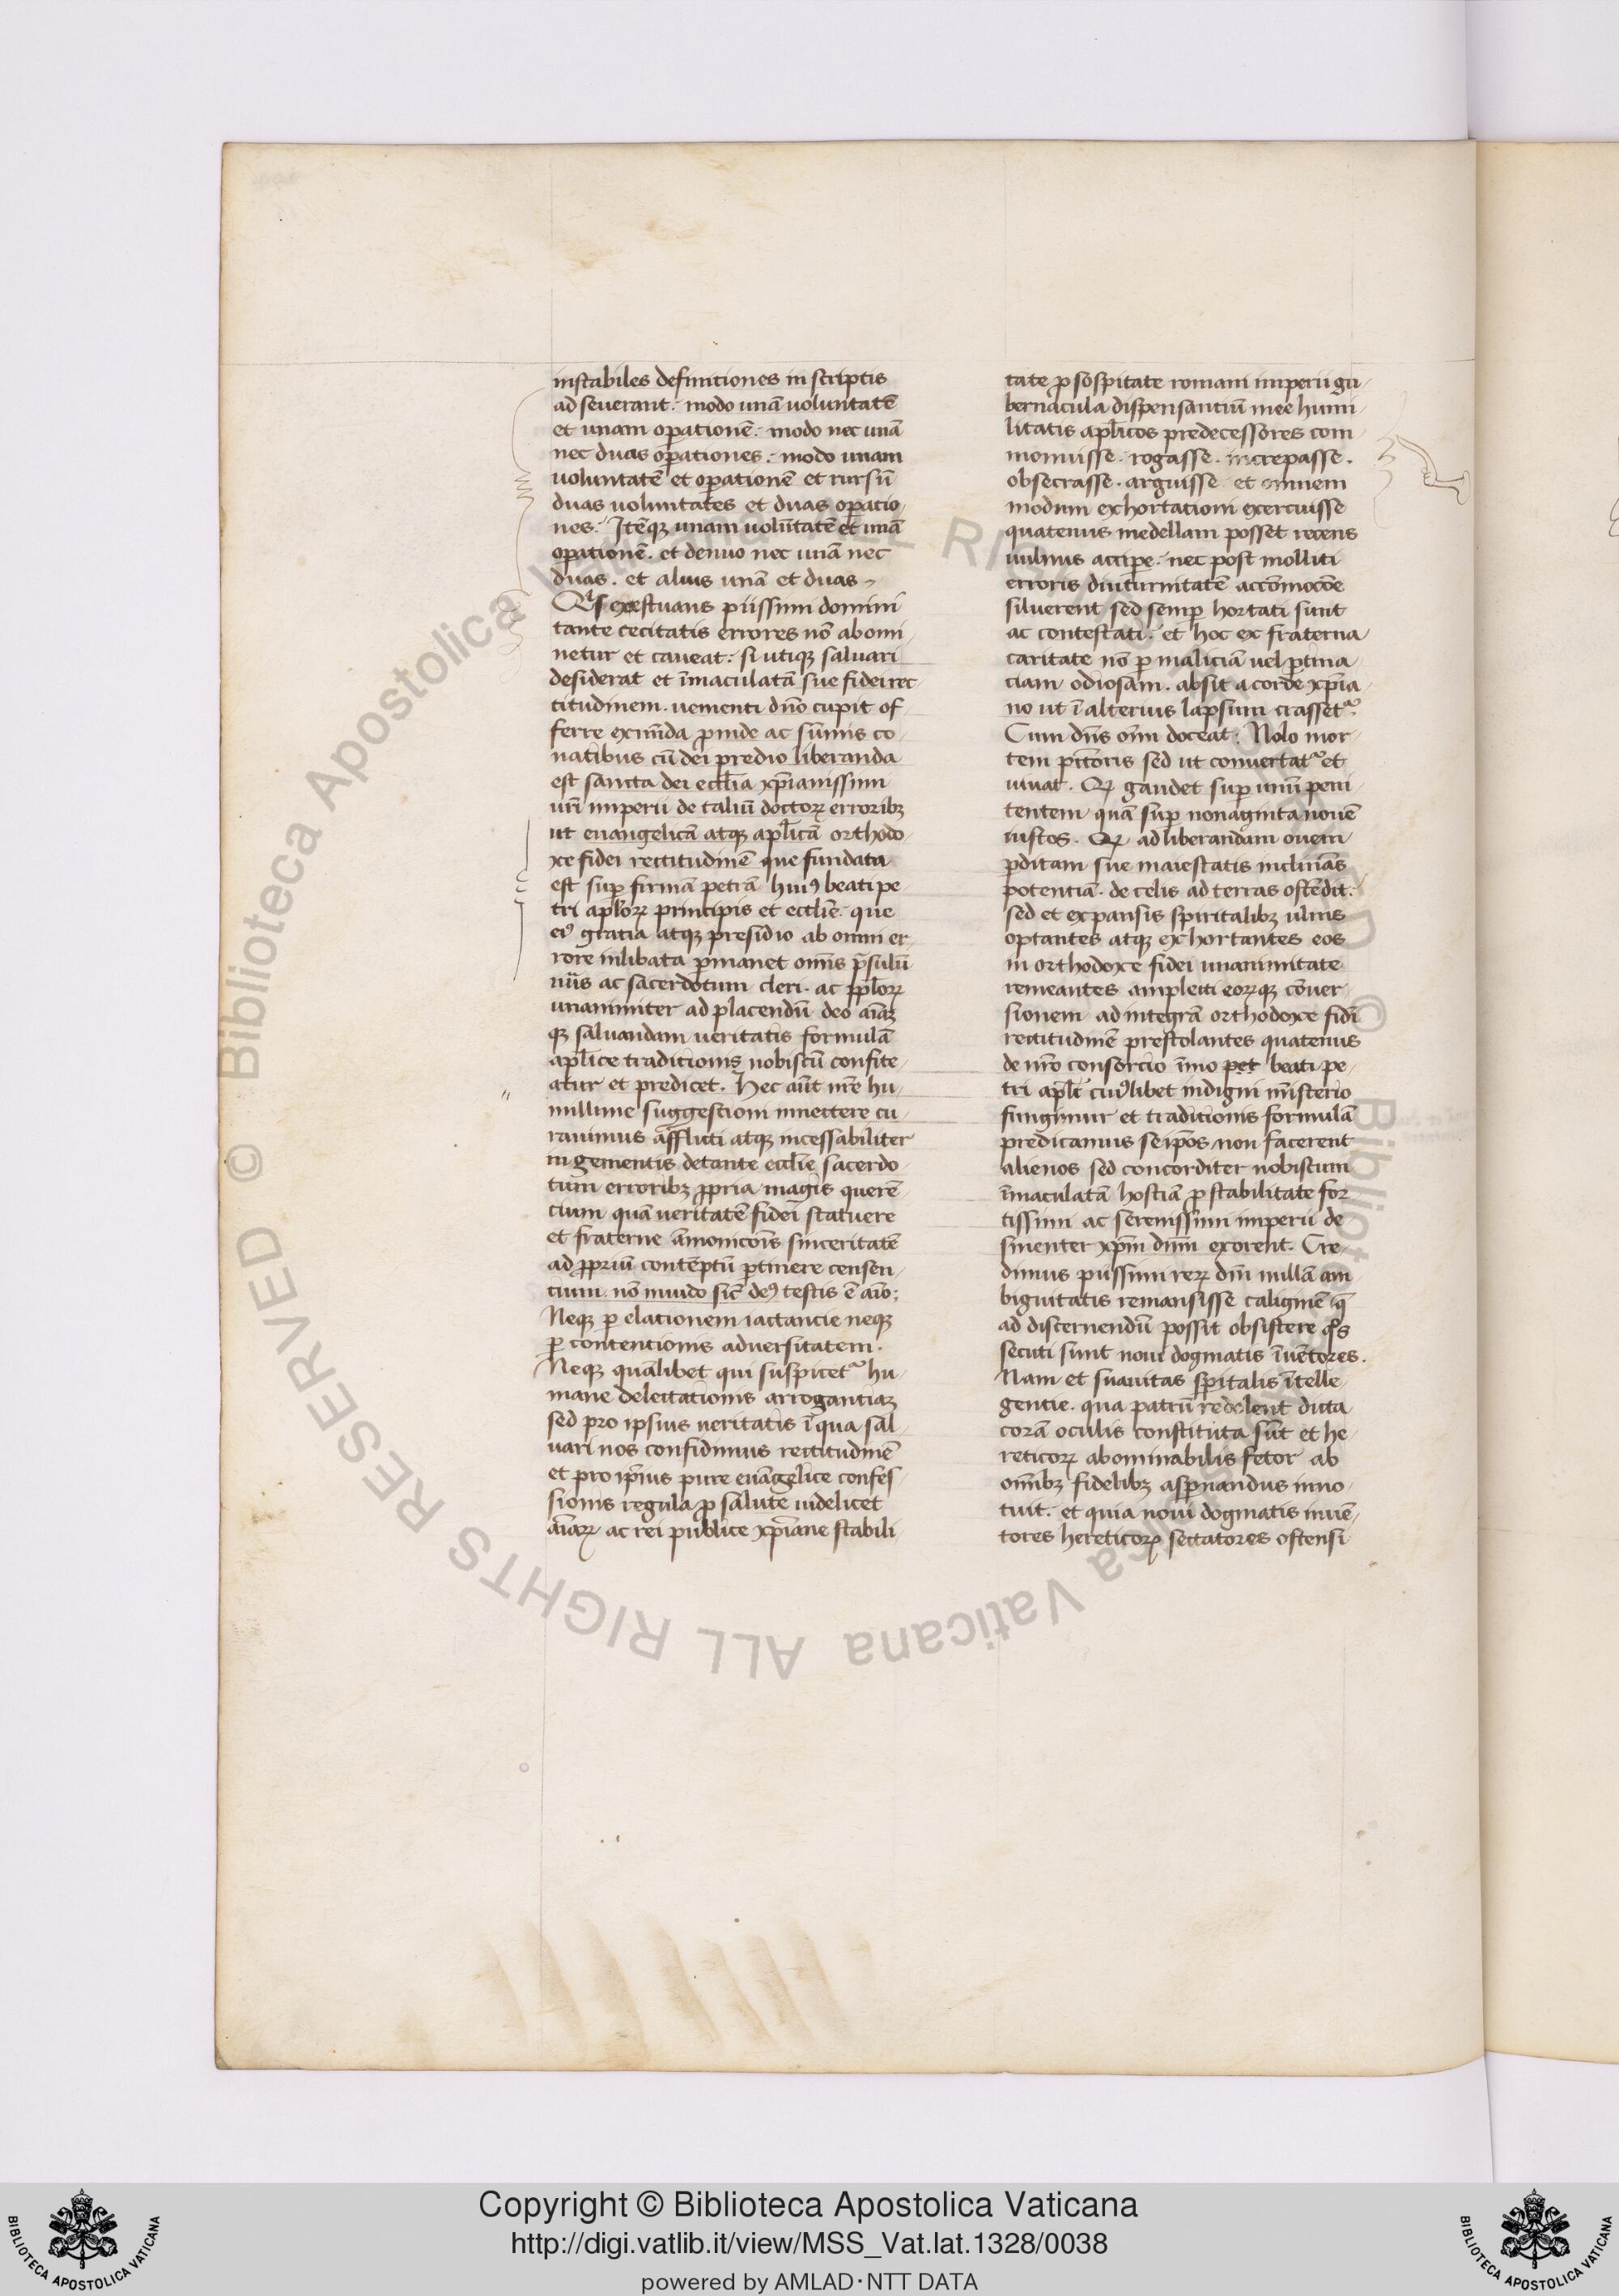 instabiles definitiones in scriptis
ad seuerant. modo unā uoluntatē
et unam oꝑationē. modo nec unā
nec duas oꝑationes. modo unam
uoluntatē et oꝑationē et rursū
duas uoluntates et duas oꝑatio
nes. Itēqꝫ unam uolūtatē et unā
oꝑationē. et denuo nec unā nec
duas. et alius unā et duas
Qͥs exestuans piissimi domini
tante cecitatis errores nō abomi
netur et caueat. si utiqꝫ saluari
desiderat et īmaculatā sue fidei rec
titudinem. uementi dn̄o cupit of
ferre ꝓinde ac sūmis co
natibus cū dei predio liberanda
est sancta dei eccl̄ia xp̄ianissimi
ur̄i imperii de taliū doctoꝝ erroribꝫ
ut euangelicā atqꝫ apl̄icā orthodo
xe fidei rectitudinē que fundata
est suꝑ firmā petrā huiꝰ beati pe
tri apl̄oꝝ principis et eccl̄ie. que
eiꝰ gratia atqꝫ presidio ab omni er
rore inlibata ꝑmanet omīs p̄sulū
nūs ac sacerdotum cleri. ac ppl̄oꝝ
unanimiter ad placendū deo aīaꝫ
qꝫ saluandam ueritatis formulā
apl̄ice traditionis nobiscū confite
atur et predicet. Hec aūt nr̄e hu
millime suggestioni innectere cu
rauimus afflicti atqꝫ incessabiliter
in gementis detante eccl̄ie sacerdo
tum erroribꝫ ꝓpria magis querē
cium quā ueritatē fidei statuere
et fraterne āmonicōis sinceritatē
ad ꝓpriū contēptū ꝑtinere censen
cium. nō inuido sic̄ deꝰ testis ē aīo;
Neqꝫ ꝑ elationem iactancie neqꝫ
ꝑ contentionis aduersitatem.
Neqꝫ quālibet qui suspicetᷣ hu
mane delectationis arrogantiaꝫ
sed pro ipsius ueritatis ī qua sal
uari nos confidimus rectitudinē
et pro ip̄ius pure euāgelice confes
sionis regula ꝓ salute uidelicet
aīaꝝ ac rei publice xp̄iane stabili
tate ꝓ sospitate romani imperii gu
bernacula dispensantiū mee humi
litatis apl̄icos predecessores com
monuisse. rogasse. increpasse.
obsecrasse. arguisse et omnem
modum exhortationi exercuisse
quatenus medellam posset recens
uulnus acciꝑe. nec post molliti
erroris diuturnitatē
siluerent sed semꝑ hortati sunt
ac contestati. et hoc ex fraterna
caritate nō ꝑ maliciā uel ꝑtina
ciam odiosam. absit a corde xp̄ia
no ut ī alterius lapsum crassetᷣ
Cum dn̄s om̄i doceat. Nolo mor
tem pctōris sed ut conuertatᷣ et
uiuat. Qꝛ gaudet suꝑ unū peni
tentem quā suꝑ nonaginta nouē
iustos. Qꝛ ad liberandam ouem
ꝑditam sue maiestatis inclināns
potentiā. de celis ad terras ostēdit.
sed et expansis spiritalibꝫ ulnis
optantes atqꝫ exhortantes eos
in orthodoxe fidei unanimitate
remeantes amplecti eoꝝqꝫ cōuer
sionem ad integrā orthodoxe fidī
rectitudinē prestolantes quatenus
de nr̄o consorcio īmo pet beati pe
tri apl̄i cuiꝰlibet indigni mīsterio
fungimur et traditionis formulā
predicamus seip̄os non facerent
alienos sed concorditer nobiscum
īmaculatā hostiā ꝓ stabilitate for
tissimi ac serenissimi imperii de
sinenter xp̄m dn̄m exorent. Cre
dimus piissimi reꝝ dn̄i nullā am
biguitatis remansisse caliginē q̄
ad discernendū possit obsistere qͦs
secuti sunt noui dogmatis īuētores.
Nam et suauitas sp̄italis ītelle
gentie. qua patrū redolent dicta
corā oculis constituta sūt et he
reticoꝝ abominabilis fetor ab
om̄ibꝫ fidelibꝫ asꝑnandus inno
tuit. et quia noui dogmatis inuē
tores hereticoꝝ sectatores ostensi
© Biblioteca Apostolica Vaticana ALL RIGHTS RESERVED
Copyright © Biblioteca Apostolica Vaticana
http://digi.vatlib.it/view/MSS_Vat.lat.1328/0038
powered by AMLAD·NTT DATA
BIBLIOTECA APOSTOLICA VATICANA
BIBLIOTECA APOSTOLICA VATICANA